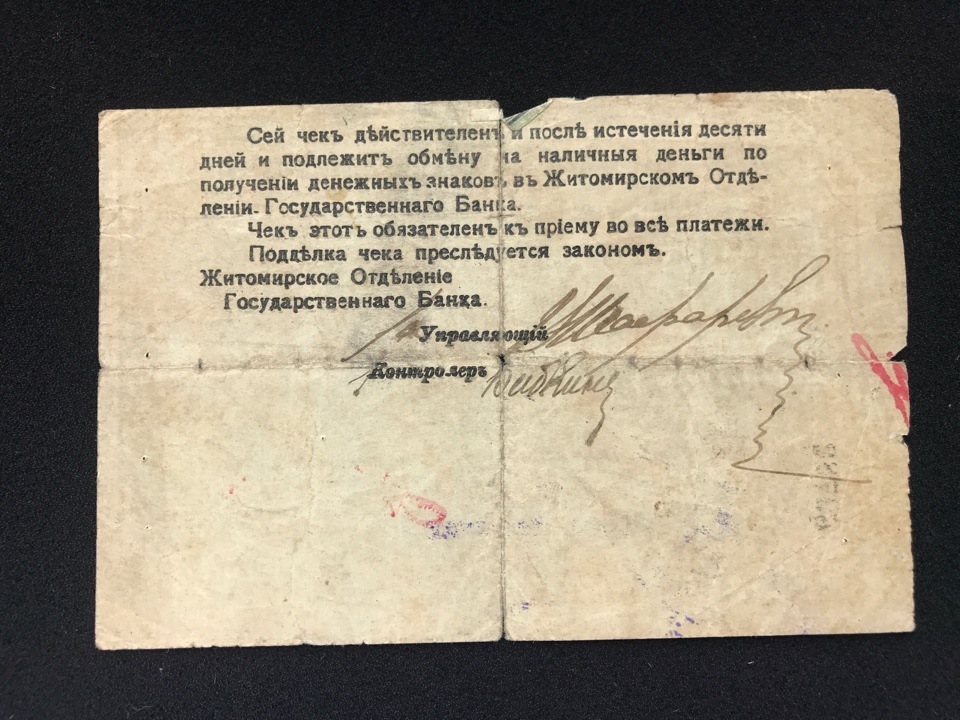 Сей чекъ дѣйствителенъ и послѣ истеченія десяти
дней и подлежитъ обмѣну на наличныя деньги по
полученіи денежныхъ знаковъ въ Житомирскомъ Отдѣ-
леніи. Государственнаго Банка.
Чекъ этотъ обязателенъ къ пріему во всѣ платежи.
Поддѣлка чека преслѣдуется закономъ.
Житомирское Отдѣленіе
Государственнаго Банка.
Управляющій
Контролеръ